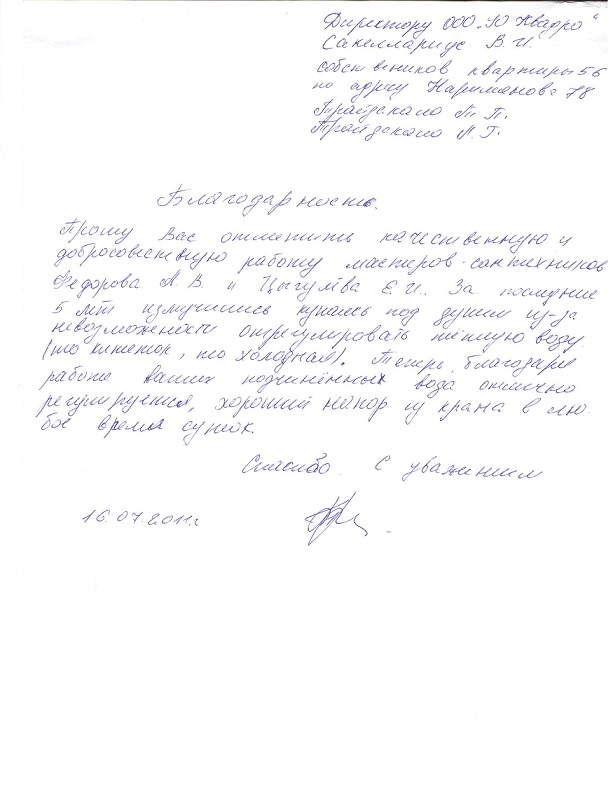 Директору ООО „Ю Квадро"
Сакеллариус В. И.
собствеников квартиры 56
по адресу Нариманова 78
П. П.
Л. Г.
Благодарность.
Прошу Вас отметить качественную и
добросовестную работу мастеров-сантехников
Федорова А. В. и Е. И.. За последние
5 лет измучились купаясь под душем из-за
невозможности отрегулировать тёплую воду
(то кипяток, то холодная). Теперь, благодаря
работе ваших подчинённых вода отлично
регулируется, хороший напор из крана в лю
бое время суток.
Спасибо. С уважением
16.07.2011г